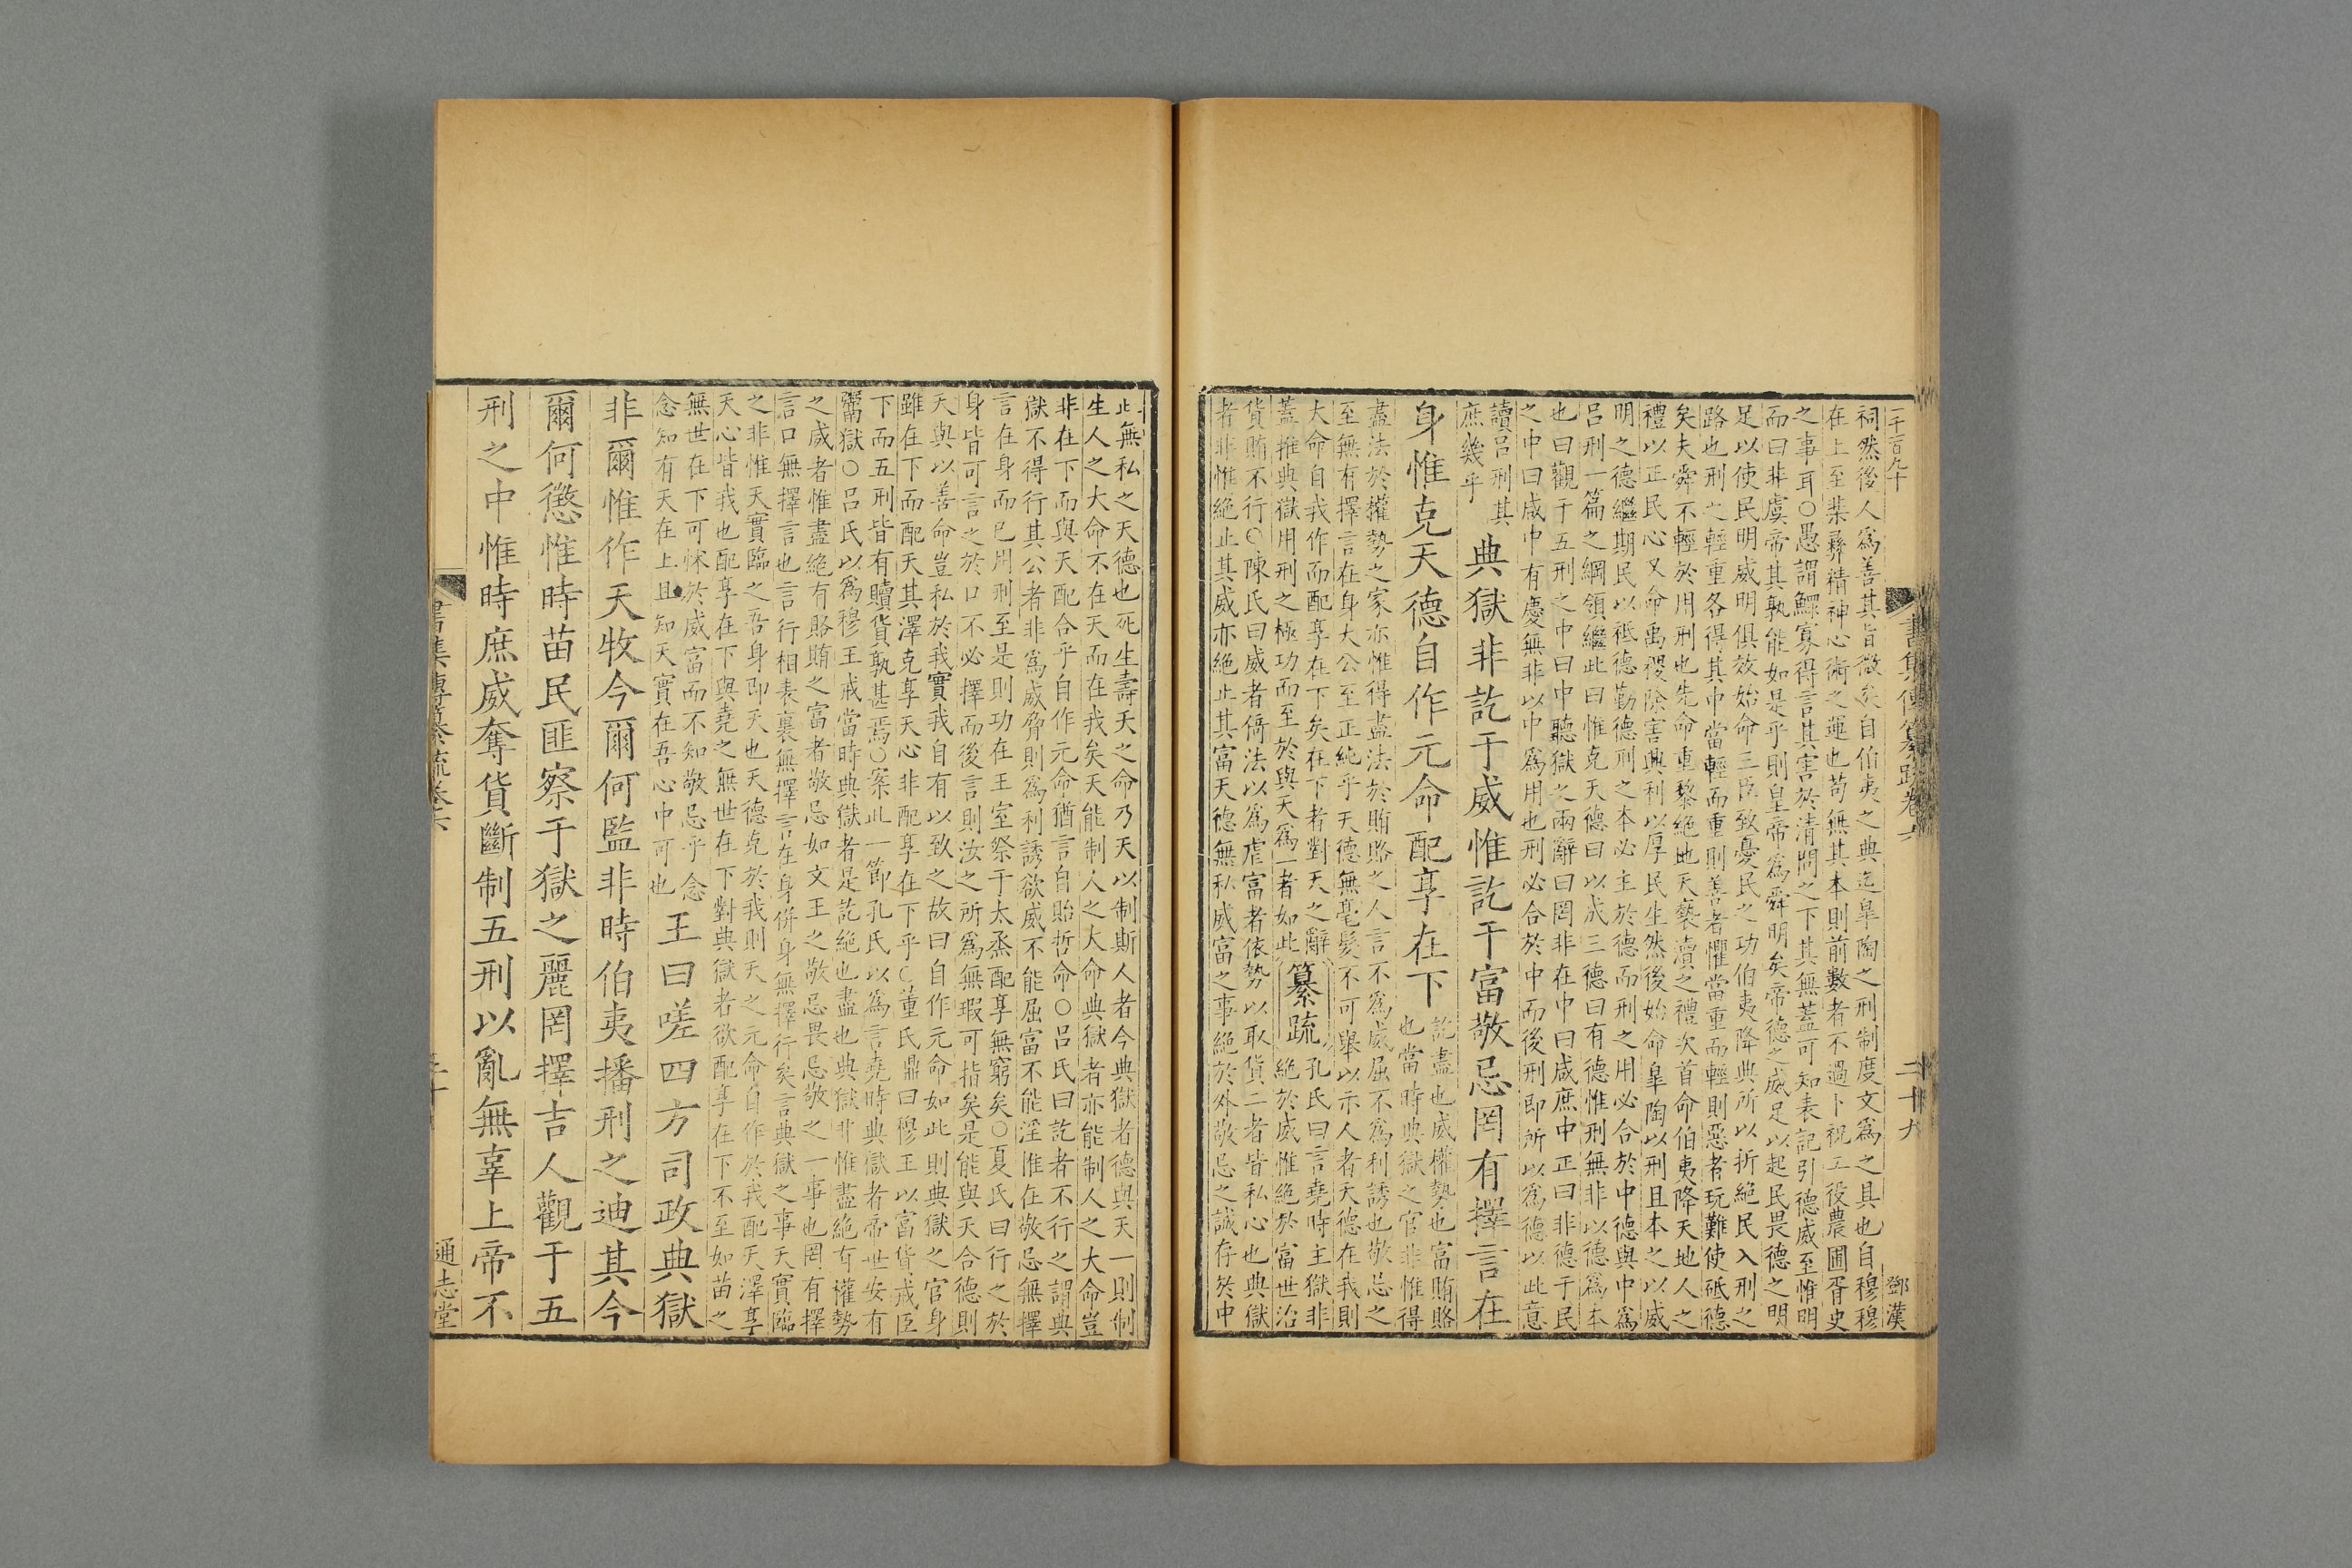 二千百九十
書集傳纂疏卷六
二十九
鄧漢
祠然後人爲善其旨微矣自伯夷之典迄皐陶之刑制度文爲之具也自穆穆
在上至棐彝精神心術之運也苟無其本則前數者不過卜祝工役農圃胥史
之事耳○愚謂鰥寡得言其害於清問之下其無蓋可知表記引德威至惟明
而曰非虞帝其孰能如是乎則皇帝爲舜明矣帝德之威足以起民畏德之明
足以使民明威明俱效始命三臣致憂民之功伯夷降典所以折絕民入刑之
路也刑之輕重各得其中當輕而重則善者懼當重而輕則惡者玩難使祗德
矣夫舜不輕於用刑也先命重黎絶地天褻瀆之禮次首命伯夷降天地人之
禮以正民心又命禹稷除害興利以厚民生然後始命皐陶以刑且本之以威
明之德繼期民以祗德勤德刑之本必主於德而刑之用必合於中德與中爲
呂刑一篇之綱領繼此曰惟克天德曰以成三德曰有德惟刑無非以德爲本
也曰觀于五刑之中曰中聽獄之兩辭曰罔非在中曰咸庶中正曰非德于民
之中曰咸中有慶無非以中爲用也刑必合於中而後刑即所以爲德以此意
讀呂刑其
庶幾乎
典獄非訖于威惟訖于富敬忌罔有擇言在
身惟克天德自作元命配享在下
訖盡也威權勢也富賄賂
也當時典獄之官非惟得
盡法於權勢之家亦惟得盡法於賄賂之人言不爲威屈不爲利誘也敬忌之
至無有擇言在身大公至正純乎天德無毫髮不可舉以示人者天德在我則
大命自我作而配享在下矣在下者對天之辭
蓋推典獄用刑之極功而至於與天爲一者如此
纂疏
孔氏曰言堯時主獄非
絶於威惟絶於富世治
貨賄不行○陳氏曰威者倚法以爲虐富者依勢以取貨二者皆私心也典獄
者非惟絶止其威亦絶止其富天德無私威富之事絶於外敬忌之誠存於中
此無私之天德也死生壽夭之命乃天以制斯人者今典獄者德與天一則制
生人之大命不在天而在我矣天能制人之大命典獄者亦能制人之大命豈
非在下而與天配合乎自作元命猶言自貽哲命○呂氏曰訖者不行之謂典
獄不得行其公者非爲威脅則爲利誘欲威不能屈富不能淫惟在敬忌無擇
言在身而已用刑至是則功在王室祭于太烝配享無窮矣○夏氏曰行之於
身皆可言之於口不必擇而後言則汝之所爲無瑕可指矣是能與天合德則
天與以善命豈私於我實我自有以致之故曰自作元命如此則典獄之官身
雖在下而配天其澤克享天心非配享在下乎○董氏鼎曰穆王以富貨戒臣
下而五刑皆有贖貨孰甚焉○案此一節孔氏以爲言堯時典獄者帝世安有
鬻獄○呂氏以爲穆王戒當時典獄者是訖絕也盡也典獄非惟盡絶有權勢
之威者惟盡絶有賂賄之富者敬忌如文王之敬忌畏忌敬之一事也罔有擇
言口無擇言也言行相表裏無擇言在身併身無擇行矣言典獄之事天實臨
之非惟天實臨之吾身即天也天德克於我則天之元命自作於我配天澤享
天心皆我也配享在下與堯之無世在下對典獄者欲配享在下不至如苗之
無世在下可怵於威富而不知敬忌乎念
念知有天在上且知天實在吾心中可也
王曰嗟四方司政典獄
非爾惟作天牧今爾何監非時伯夷播刑之迪其今
爾何懲惟時苗民匪察于獄之麗罔擇吉人觀于五
刑之中惟時庶威奪貨斷制五刑以亂無辜上帝不
書集傳纂疏卷六
通志堂